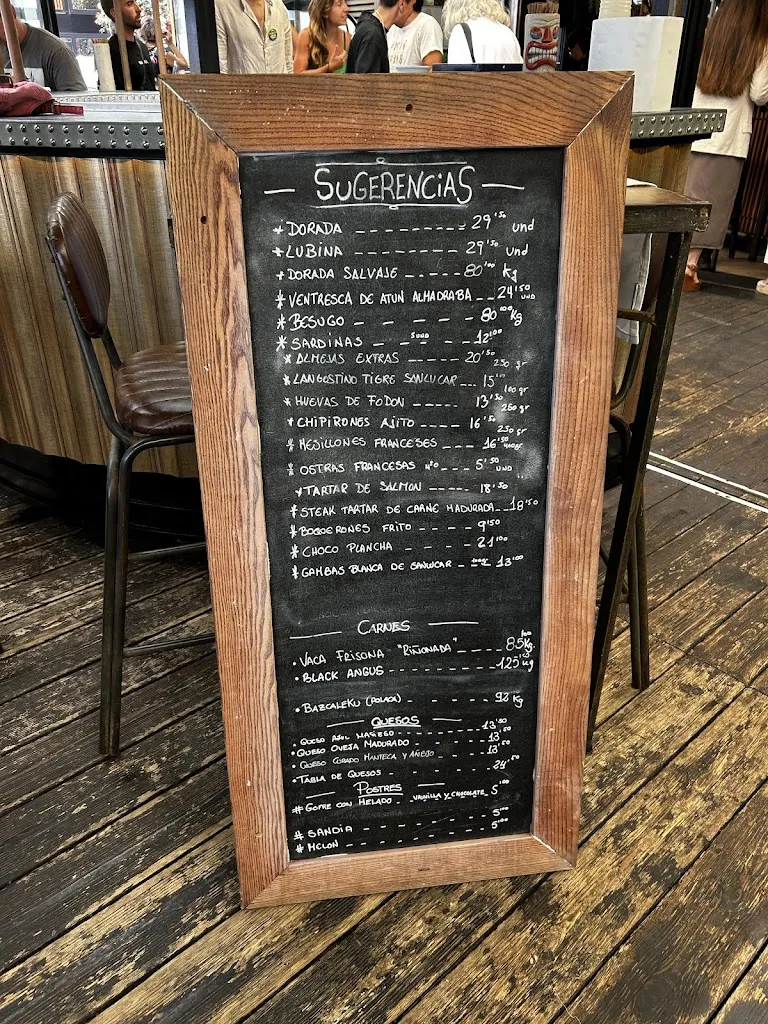 SUGERENCIAS
* DORADA 29'50 und
* LUBINA 29'50 und
* DORADA SALVAJE 80'00 Kg
* VENTRESCA DE ATUN ALMADRABA 24'50 UND
* BESUGO 80'00 Kg
* SARDINAS 5UND 12'00
* ALMEJAS EXTRAS 20'50 250 gr
* LANGOSTINO TIGRE SANLUCAR 15'00 100 gr
* HUEVAS DE FODON 13'50 250 gr
* CHIPIRONES AJITO 16'50 250 gr
* MEJILLONES FRANCESES 16'50
* OSTRAS FRANCESAS 5'50 UND
* TARTAR DE SALMON 18'50
* STEAK TARTAR DE CARNE MADURADA 18'50
* BOQUERONES FRITO 9'50
* CHOCO PLANCHA 21'00
* GAMBAS BLANCA DE SANLUCAR 100gr 13'00
CARNES
• VACA FRISONA "RIÑONADA" 85'00 Kg
• BLACK ANGUS 125 Kg
• BAZCALEKU (POLACA) 92 Kg
QUESOS
• QUESO AZUL 13'50
• QUESO OVEJA MADURADO 13'50
• QUESO CURADO MANTECA Y AÑEJO 13'50
• TABLA DE QUESOS 24'50
POSTRES
# GOFRE CON HELADO VAINILLA Y CHOCOLATE 5'00
# SANDIA 5'00
# MELON 5'00